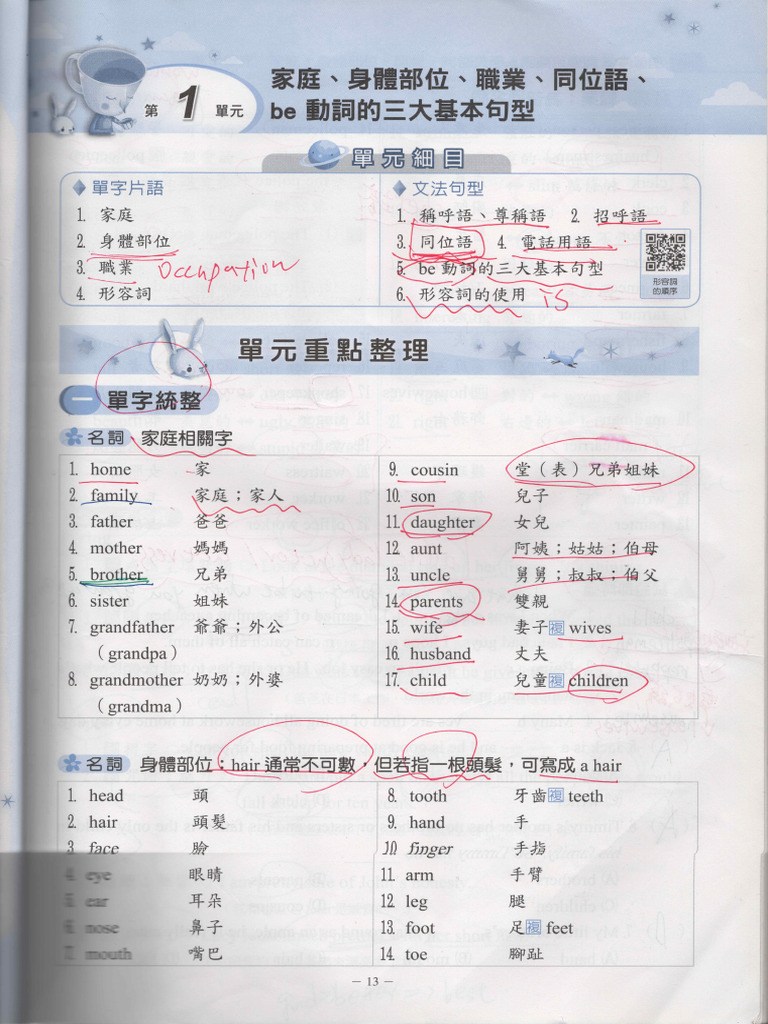 第 1 單元
家庭、身體部位、職業、同位語、
be 動詞的三大基本句型
單元細目
單字片語
1. 家庭
2. 身體部位
3. 職業 Occupation
4. 形容詞
文法句型
1. 稱呼語、尊稱語 2. 招呼語
3. 同位語 4. 電話用語
5. be 動詞的三大基本句型
6. 形容詞的使用 is
形容詞
的順序
單元重點整理
一 單字統整
名詞 家庭相關字
1. home 家
2. family 家庭；家人
3. father 爸爸
4. mother 媽媽
5. brother 兄弟
6. sister 姐妹
7. grandfather 爺爺；外公
（grandpa）
8. grandmother 奶奶；外婆
（grandma）
9. cousin 堂（表）兄弟姐妹
10. son 兒子
11. daughter 女兒
12. aunt 阿姨；姑姑；伯母
13. uncle 舅舅；叔叔；伯父
14. parents 雙親
15. wife 妻子 複 wives
16. husband 丈夫
17. child 兒童 複 children
名詞 身體部位：hair 通常不可數，但若指一根頭髮，可寫成 a hair
1. head 頭
2. hair 頭髮
3. face 臉
4. eye 眼睛
5. ear 耳朵
6. nose 鼻子
7. mouth 嘴巴
8. tooth 牙齒 複 teeth
9. hand 手
10. finger 手指
11. arm 手臂
12. leg 腿
13. foot 足 複 feet
14. toe 腳趾
– 13 –